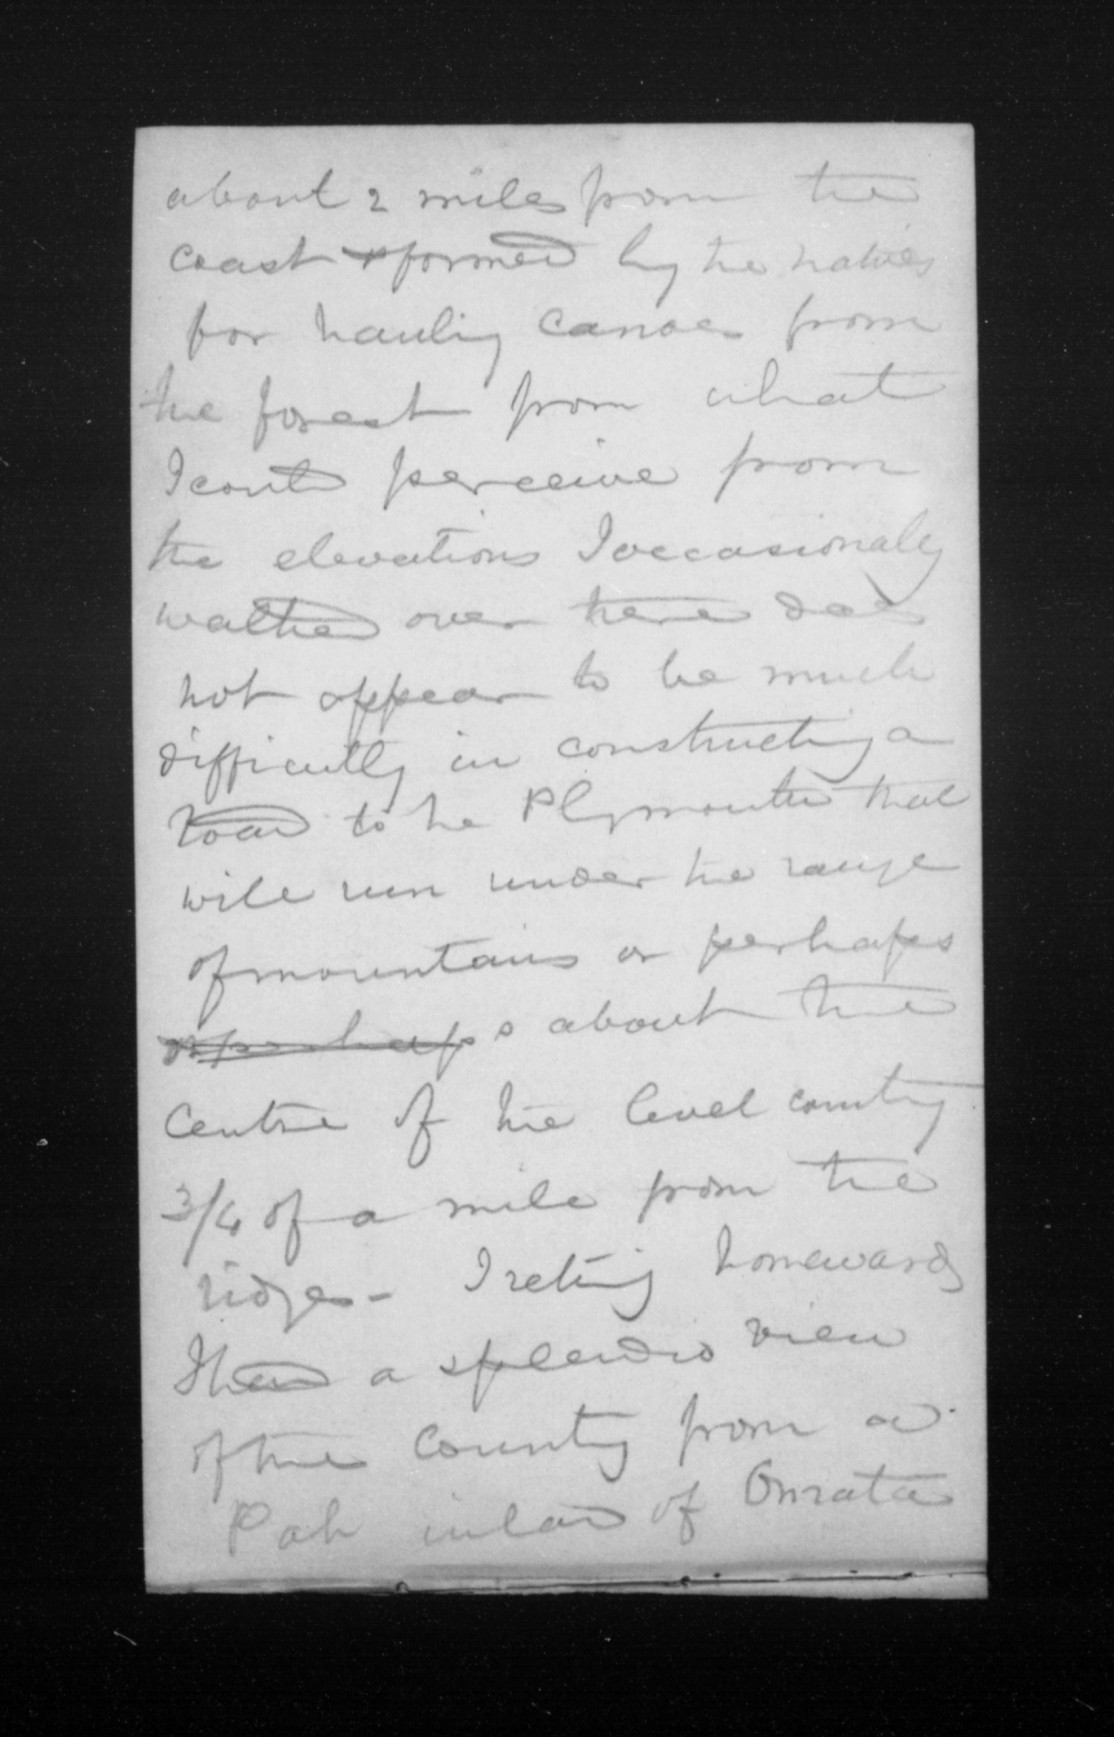 about 2 miles from the
coast & formed by the natives
for hauling canoes from
the forest from what
I could perceive from
the elevations I occasionally
walked over there does
not appear to be much
difficulty in constructing a
road to Plymouth that
will run under the range
of mountains or perhaps
or perhaps about the
centre of the level country
3/4 of a mile from the
ridges - I retiring homewards
I had a splendid view
of the country from a
Pah inland of Onrata